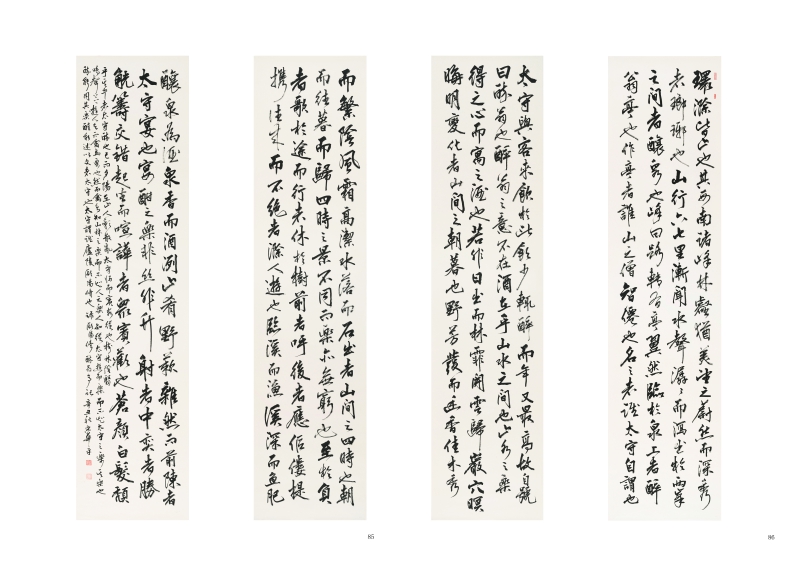 環滁皆山也其西南諸峰林壑猶美望之蔚然而深秀
者瑯琊也山行六七里漸聞水聲潺潺而瀉出於兩峯
之間者釀泉也峰回路轉有亭翼然臨於泉上者醉
翁亭也作亭者誰山之僧智僊也名之者誰太守自謂也
太守與客來飲於此飲少輒醉而年又最高故自號
曰醉翁也醉翁之意不在酒在乎山水之間也山水之樂
得之心而寓之酒也若夫日出而林霏開雲歸巖穴暝
晦明變化者山間之朝暮也野芳發而幽香佳木秀
而繁陰風霜高潔水落而石出者山間之四時也朝
而往暮而歸四時之景不同而樂亦無窮也至於負
者歌於途而行者休於樹前者呼後者應佝僂提
攜往來而不絕者滁人遊也臨溪而漁溪深而魚肥
釀泉為酒泉香而酒洌山肴野蔌雜然而前陳者
太守宴也宴酣之樂非絲非竹射者中奕者勝
觥籌交錯起坐而喧譁者眾賓歡也蒼顏白髮頹
85
86